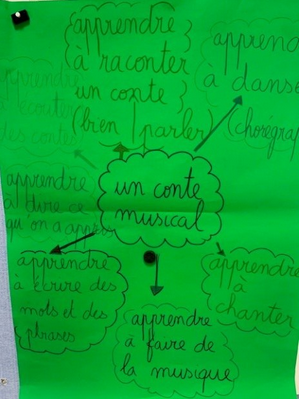 apprendre
à raconter
un conte
(bien parler)
à danse
(chorégrap
apprendre
à écouter
des contes
un conte
musical
apprendre
à dire ce
qu'on a appris
apprendre
à écrire des
mots et des
phrases
apprendre
à faire de
la musique
apprendre
à
chanter